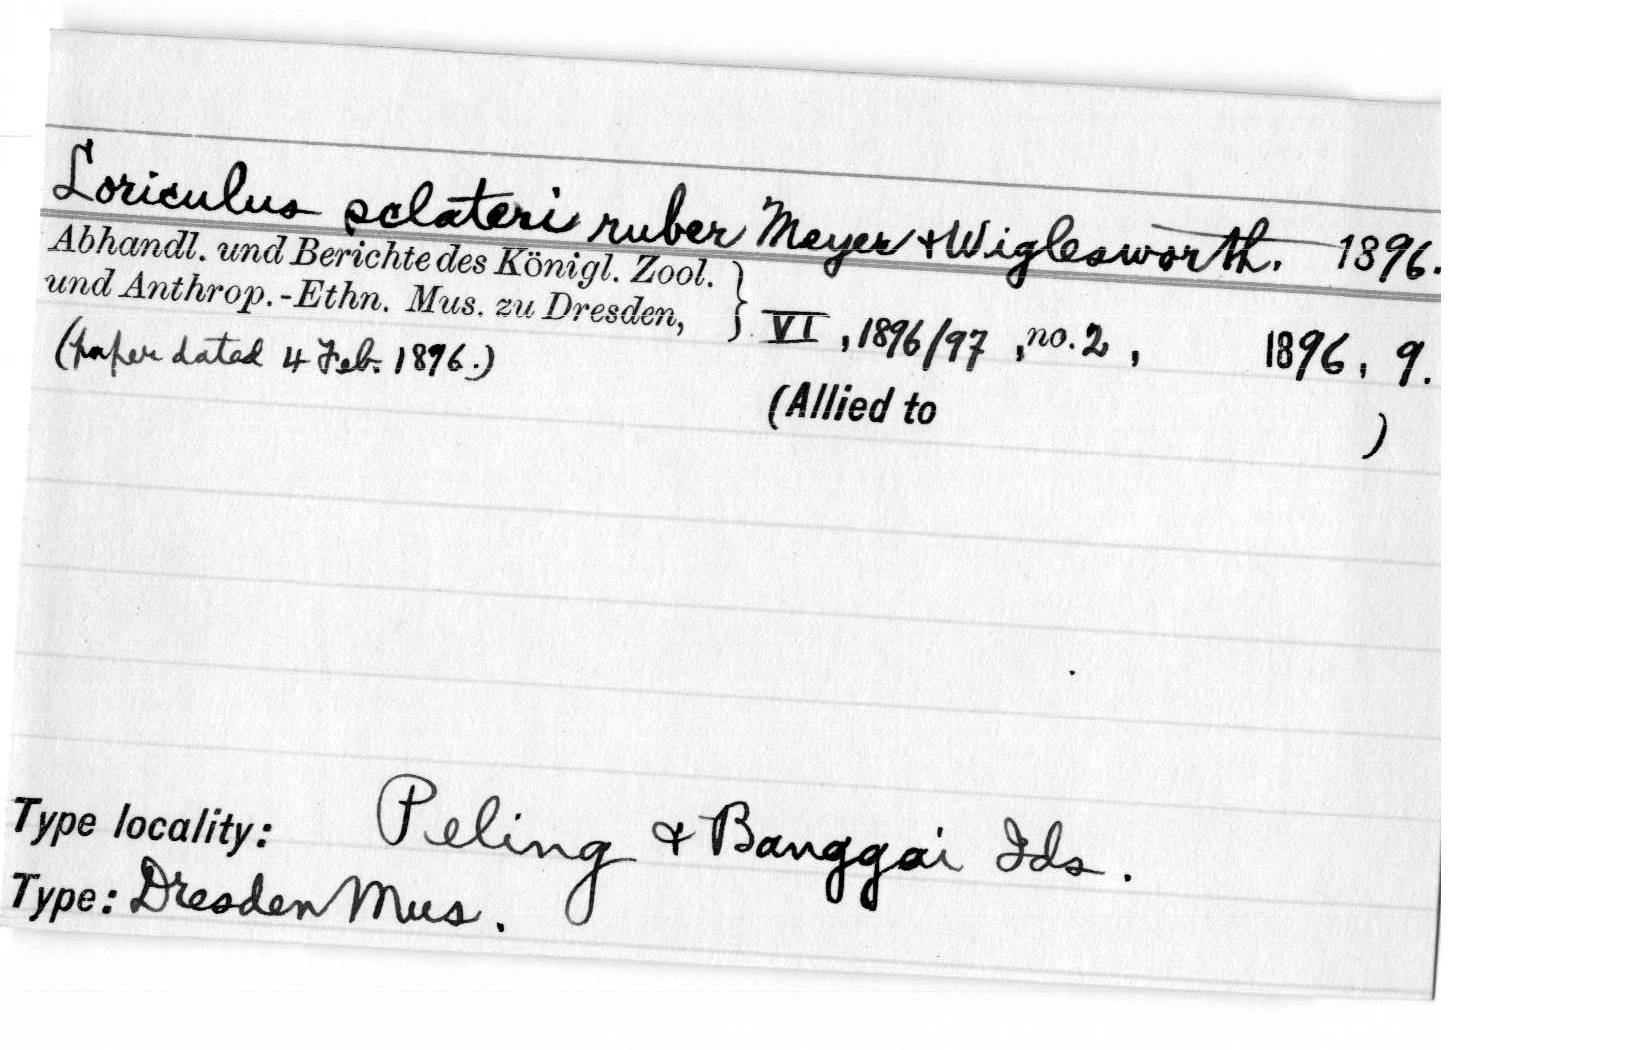 Loriculus sclateri ruber Meyer & Wiglesworth. 1896.
Abhandl. und Berichte des Königl. Zool.
und Anthrop.-Ethn. Mus. zu Dresden, } VI, 1896/97, no. 2, 1896, 9.
(paper dated 4 Feb. 1896.)
(Allied to )
Type locality: Peling & Banggai Ids.
Type: Dresden Mus.